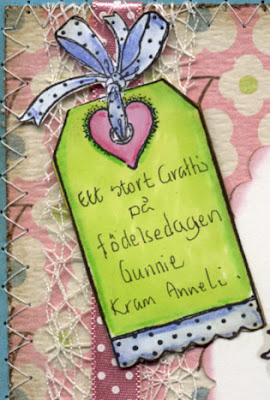 Ett stort Grattis
på
födelsedagen
Gunnie
Kram Anneli.